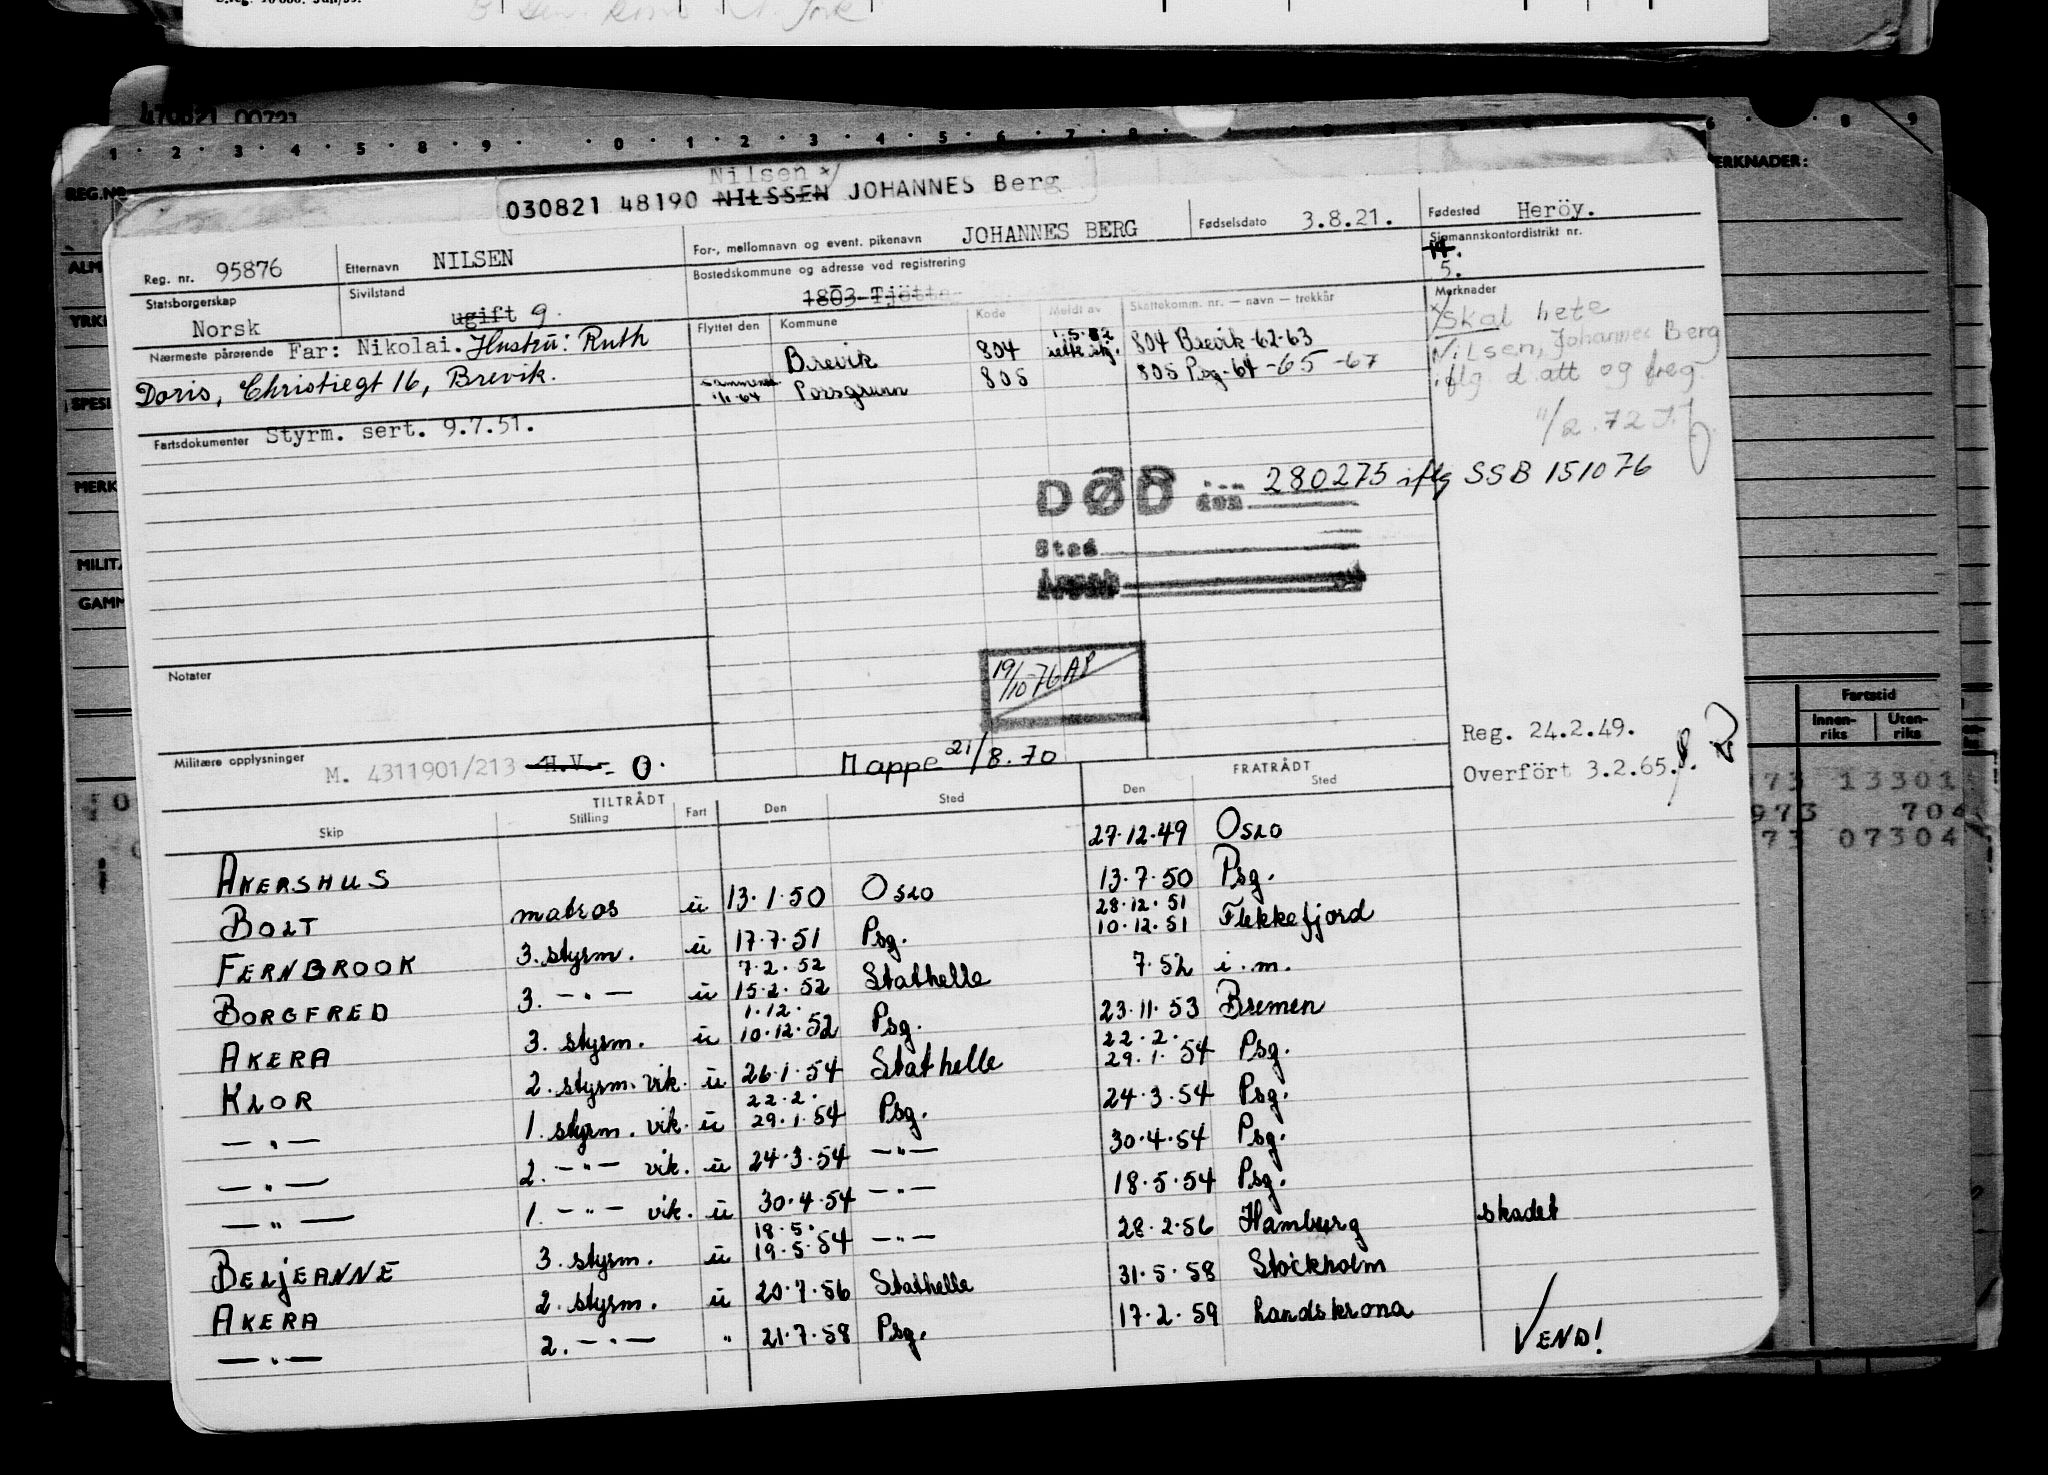 470821 00721
1 · 2 · 3 · 4 · 5 · 8 · 9 · · 0 · 1 · 2 · 3 · 4 · 5 · 6 · 7 · 8
8 · 9
REG.NR.
ERKNADER:
Nilsen x/
030821 48190 NILSSEN JOHANNES Berg
Reg. nr. 95876 Etternavn NILSEN For-, mellomnavn og event. pikenavn JOHANNES BERG Fødselsdato 3.8.21. Fødested Heröy.
Statsborgerskap Norsk Sivilstand ugift g. Bostedskommune og adresse ved registrering 1803 Tjötta Sjømannskontordistrikt nr. 5.
Nærmeste pårørende Far: Nikolai. Hustru: Ruth
Doris, Christiegt 16, Brevik.
Flyttet den Kommune Kode Meldt av Skattekomm. nr. — navn — trekkår Merknader
Brevik 804 804 Brevik -62-63
1-1-64 Porsgrunn 805 805 Psg -64 -65 -67
x/ Skal hete
Nilsen, Johannes Berg
iflg d.att og freg
11/2.72
Fartsdokumenter Styrm. sert. 9.7.51.
DØD den 280275 iflg SSB 151076
Sted
19/10-76 AP
Notater
Militære opplysninger M. 4311901/213 H.V. - 0.
Mappe 21/8.70
Reg. 24.2.49.
Overfört 3.2.65.
Fartstid
Innen-riks Uten-riks
973 13301
973 704
73 07304
TILTRÅDT FRATRÅDT
Skip Stilling Fart Den Sted Den Sted
AKERSHUS 27.12.49 Oslo
BOLT matros u 13.1.50 Oslo 13.7.50 Psg.
FERNBROOK 3. styrm. u 17.7.51 Psg. 28.12.51 10.12.51 Flekkefjord
BORGFRED 3. —"— u 7.2.52 15.2.52 Stathelle 7.52 i.m.
AKERA 3. styrm. u 1.12. 10.12.52 Psg. 23.11.53 Bremen
KLOR 2. styrm. vik. u 26.1.54 Stathelle 22.2. 29.1.54 Psg.
—"— 1. styrm. vik. u 22.2. 29.1.54 Psg. 24.3.54 Psg.
—"— 2. —"— vik. u 24.3.54 —"— 30.4.54 Psg.
—"— 1. —"— vik. u 30.4.54 —"— 18.5.54 Psg.
BELJEANNE 3. styrm. u 18.5. 19.5.54 —"— 28.2.56 Hamburg skadet
AKERA 2. styrm. u 20.7.56 Stathelle 31.5.58 Stockholm
—"— 2. —"— " 21.7.58 Psg. 17.2.59 Landskrona
VEND!